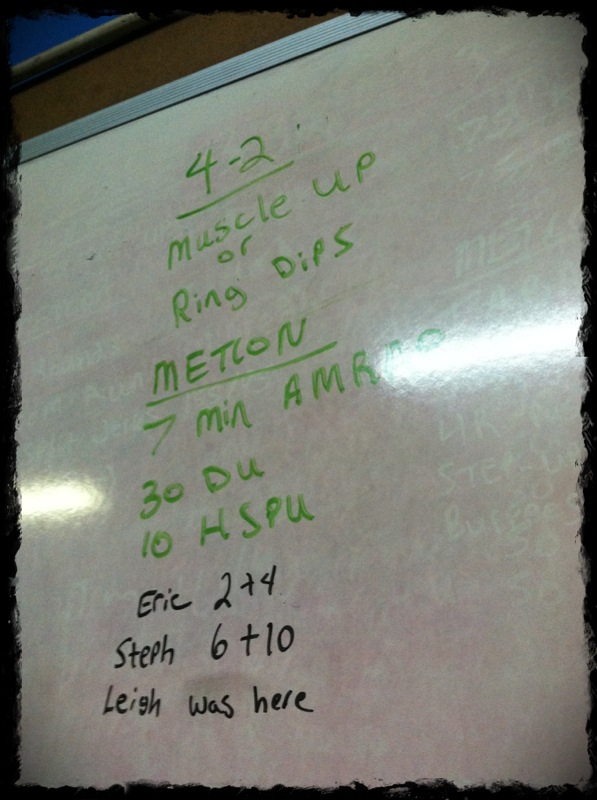 4-2
Muscle UP
or
Ring DiPS
METCON
7 min AMRAP
30 DU
10 HSPU
Eric 2+4
Steph 6+10
Leigh was here